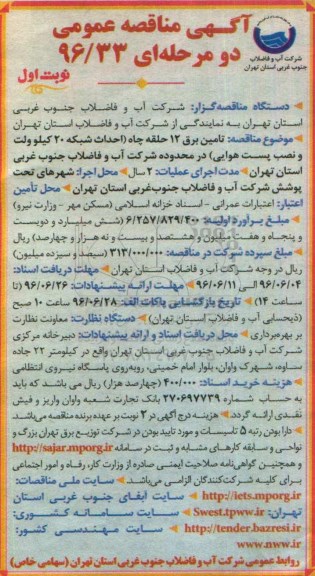 آگهی مناقصه عمومی
دو مرحله‌ای ۹۶/۳۳
شرکت آب و فاضلاب
جنوب غربی استان تهران
نوبت اول
دستگاه مناقصه‌گزار: شرکت آب و فاضلاب جنوب غربی
استان تهران به نمایندگی از شرکت آب و فاضلاب استان تهران
موضوع مناقصه: تامین برق ۱۲ حلقه چاه (احداث شبکه ۲۰ کیلو ولت
و نصب پست هوایی) در محدوده شرکت آب و فاضلاب جنوب غربی
استان تهران مدت اجرای عملیات: ۲ سال محل اجرا: شهرهای تحت
پوشش شرکت آب و فاضلاب جنوب‌غربی استان تهران محل تأمین
اعتبار: اعتبارات عمرانی - اسناد خزانه اسلامی (مسکن مهر - وزارت نیرو)
مبلغ برآورد اولیه: ۶/۲۵۷/۸۲۹/۴۰۰ (شش میلیارد و دویست
و پنجاه و هفت میلیون و هشتصد و بیست و نه هزار و چهارصد) ریال
مبلغ سپرده شرکت در مناقصه: ۳۱۳/۰۰۰/۰۰۰ (سیصد و سیزده میلیون)
ریال در وجه شرکت آب و فاضلاب استان تهران مهلت دریافت اسناد:
۹۶/۰۶/۰۴ الی ۹۶/۰۶/۱۱ مهلت ارائه پیشنهادات: ۹۶/۰۶/۲۶ (تا
ساعت ۱۴) تاریخ بازگشایی پاکات الف: ۹۶/۰۶/۲۸ ساعت ۱۰ صبح
(ذیحسابی آب و فاضلاب استان تهران) دستگاه نظارت: معاونت نظارت
بر بهره‌برداری محل دریافت اسناد و ارائه پیشنهادات: دبیرخانه مرکزی
شرکت آب و فاضلاب جنوب غربی استان تهران واقع در کیلومتر ۲۲ جاده
ساوه، شهرک واوان، بلوار امام خمینی، روبه‌روی پاسگاه نیروی انتظامی
هزینه خرید اسناد: ۴۰۰/۰۰۰ (چهارصد هزار) ریال می باشد که باید
به حساب شماره ۲۷۰۶۹۷۷۳۹ بانک تجارت شعبه واوان واریز و فیش
نقدی ارائه گردد. هزینه درج آگهی در ۲ نوبت بر عهده برنده مناقصه می‌باشد.
دارا بودن رتبه ۵ تاسیسات و مورد تایید بودن در شرکت توزیع برق تهران بزرگ و
نواحی و سابقه کارهای مشابه و ثبت در سامانه http://sajar.mporg.ir
و همچنین گواهی‌نامه صلاحیت ایمنی صادره از وزارت کار، رفاه و امور اجتماعی
برای کلیه شرکت‌کنندگان الزامی می‌باشد. سایت ملی مناقصات:
http://iets.mporg.ir سایت آبفای جنوب غربی استان
تهران: Swest.tpww.ir سایت سامانه کشوری:
http://tender.bazresi.ir سایت مهندسی کشور:
www.nww.ir
روابط عمومی شرکت آب و فاضلاب جنوب غربی استان تهران (سهامی خاص)